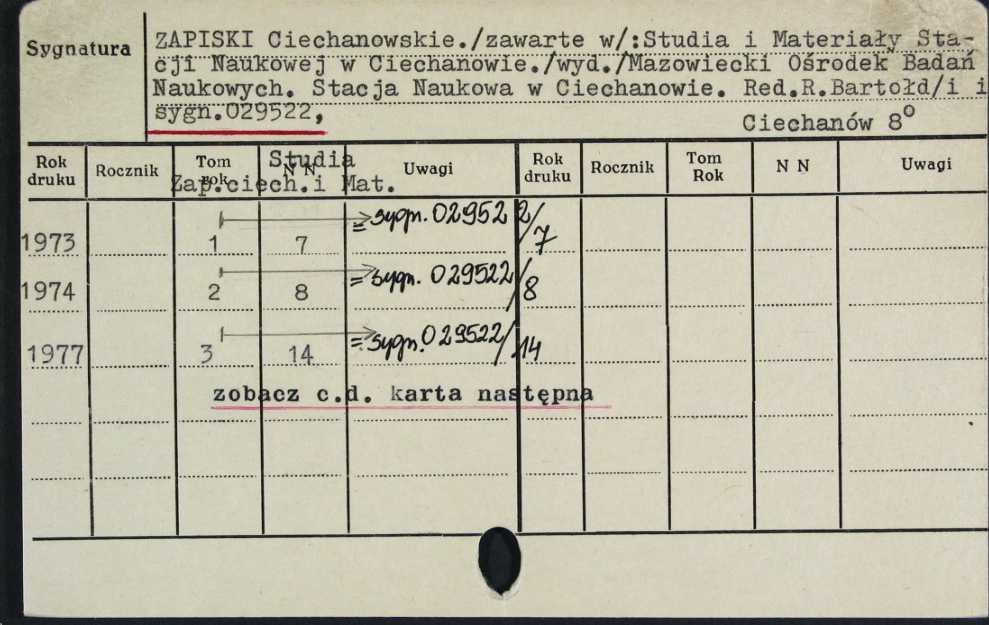 Sygnatura
ZAPISKI Ciechanowskie./zawarte w/:Studia i Materiały Sta-
cji Naukowej w Ciechanowie./wyd./Mazowiecki Ośrodek Badań
Naukowych. Stacja Naukowa w Ciechanowie. Red.R.Bartołd/i i
sygn.029522,
Ciechanów 8°
Rok druku Rocznik Tom rok N N Uwagi Rok druku Rocznik Tom Rok N N Uwagi
Studia
Zap.ciech.i Mat.
1973 1 7 = sygn. 029522/7
1974 2 8 = sygn. 029522/8
1977 3 14 = sygn. 029522/14
zobacz c.d. karta następna